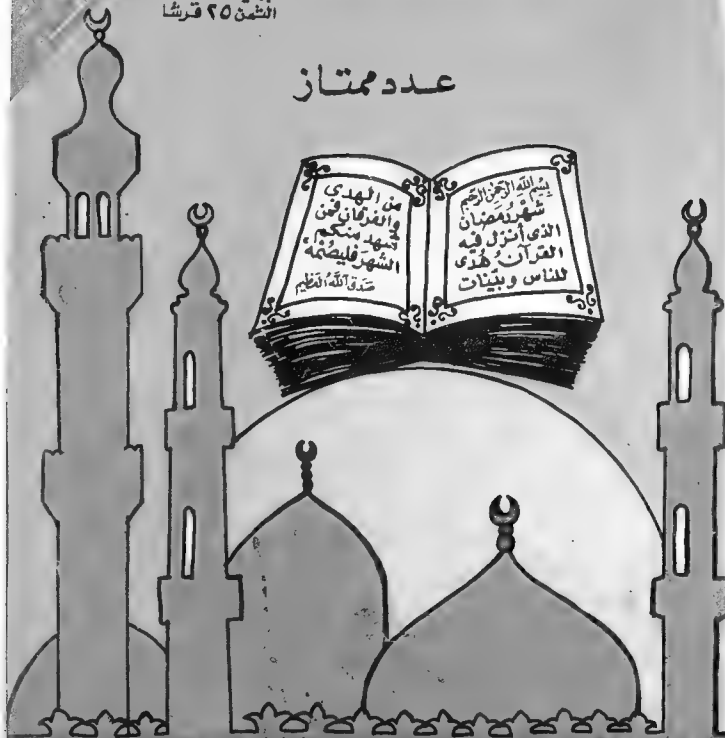 الثمن ٢٥ قرشا
عدد ممتاز
بِسْمِ اللّهِ الرَّحْمٰنِ الرَّحِيمِ
شَهْرُ رَمَضَانَ
الذى أُنزل فيه
القرآن هُدًى
للناس وبيّنات
من الهدى
والفرقان فمن
شهد منكم
الشهرَ فليصُمْهُ
صَدَقَ اللّهُ العَظِيم